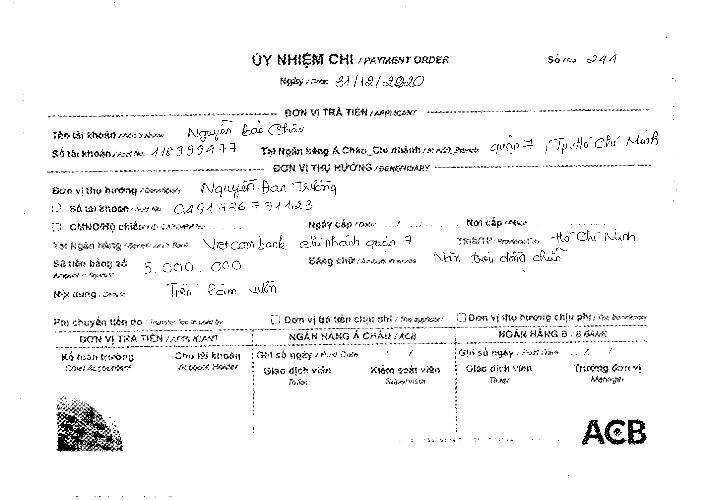 ỦY NHIỆM CHI / PAYMENT ORDER Số / No 244
Ngày / Date 31/12/2020
ĐƠN VỊ TRẢ TIỀN / APPLICANT
Tên tài khoản / Acct's Name Nguyễn Bảo Châu
Số tài khoản / Acct No. 118999477 Tại Ngân hàng Á Châu_Chi nhánh / At ACB_Branch quận 7, Tp. Hồ Chí Minh
ĐƠN VỊ THỤ HƯỞNG / BENEFICIARY
Đơn vị thụ hưởng / Beneficiary Nguyễn Đan Trường
Số tài khoản / Acct No.
CMND/Hộ chiếu / ID Card/PP No Ngày cấp / Date / / Nơi cấp / Place
Tại Ngân hàng / Beneficiary's Bank Vietcombank chi nhánh quận 7 Tỉnh/TP / Province/City Hồ Chí Minh
Số tiền bằng số 5.000.000 Bằng chữ / Amount in words Năm triệu đồng chẵn
Amount in figures
Nội dung / Details Tiền
Phí chuyển tiền do / Transfer fee is paid by Đơn vị trả tiền chịu phí / The applicant Đơn vị thụ hưởng chịu phí / The beneficiary
ĐƠN VỊ TRẢ TIỀN / APPLICANT NGÂN HÀNG Á CHÂU / ACB NGÂN HÀNG B / B BANK
Kế toán trưởng Chủ tài khoản Ghi sổ ngày / Post Date / / Ghi sổ ngày / Post Date / /
Chief Accountant Account Holder Giao dịch viên Kiểm soát viên Giao dịch viên Trưởng đơn vị
Teller Supervisor Teller Manager
ACB